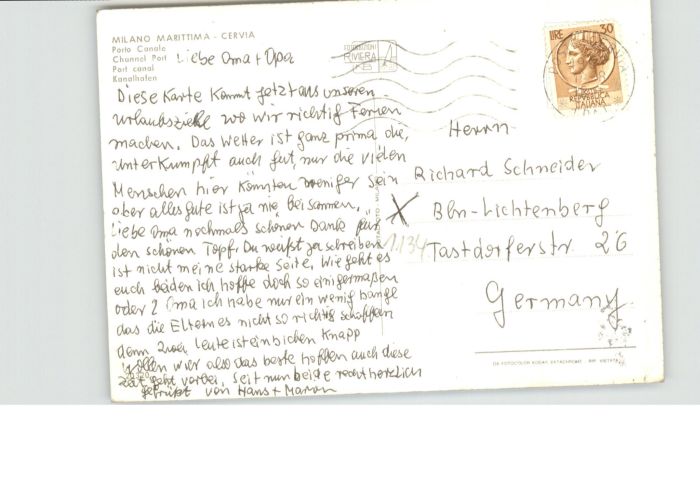 MILANO MARITTIMA - CERVIA
Porto Canale
Channel Port
Port canal
Kanalhafen
Liebe Oma + Opa
Diese Karte kommt jetzt aus unseren
urlaubsziele wo wir richtig Ferien
machen. Das Wetter ist ganz prima die
unterkumpft auch gut, nur die vielen
Menschen hier könnten weniger sein
aber alles gute ist ja nie beisammen.
Liebe Oma nochmals schönen Dank für
den schönen Topf. Du weißt ja schreiben
ist nicht meine starke Seite. Wie geht es
euch beiden ich hoffe doch so einigermaßen
oder? Oma ich habe nur ein wenig bange
das die Eltern es nicht so richtig schaffen
denn zwei Leute ist ein bichen knapp
wollen wir also das beste hoffen auch diese
zeit geht vorbei, seit nun beide recht herzlich
gegrüßt von Hans +
RIVIERA
LIRE 30
REPUBBLICA
ITALIANA
Herrn
Richard Schneider
Bln-Lichtenberg
1134
Tastdorferstr 26
Germany